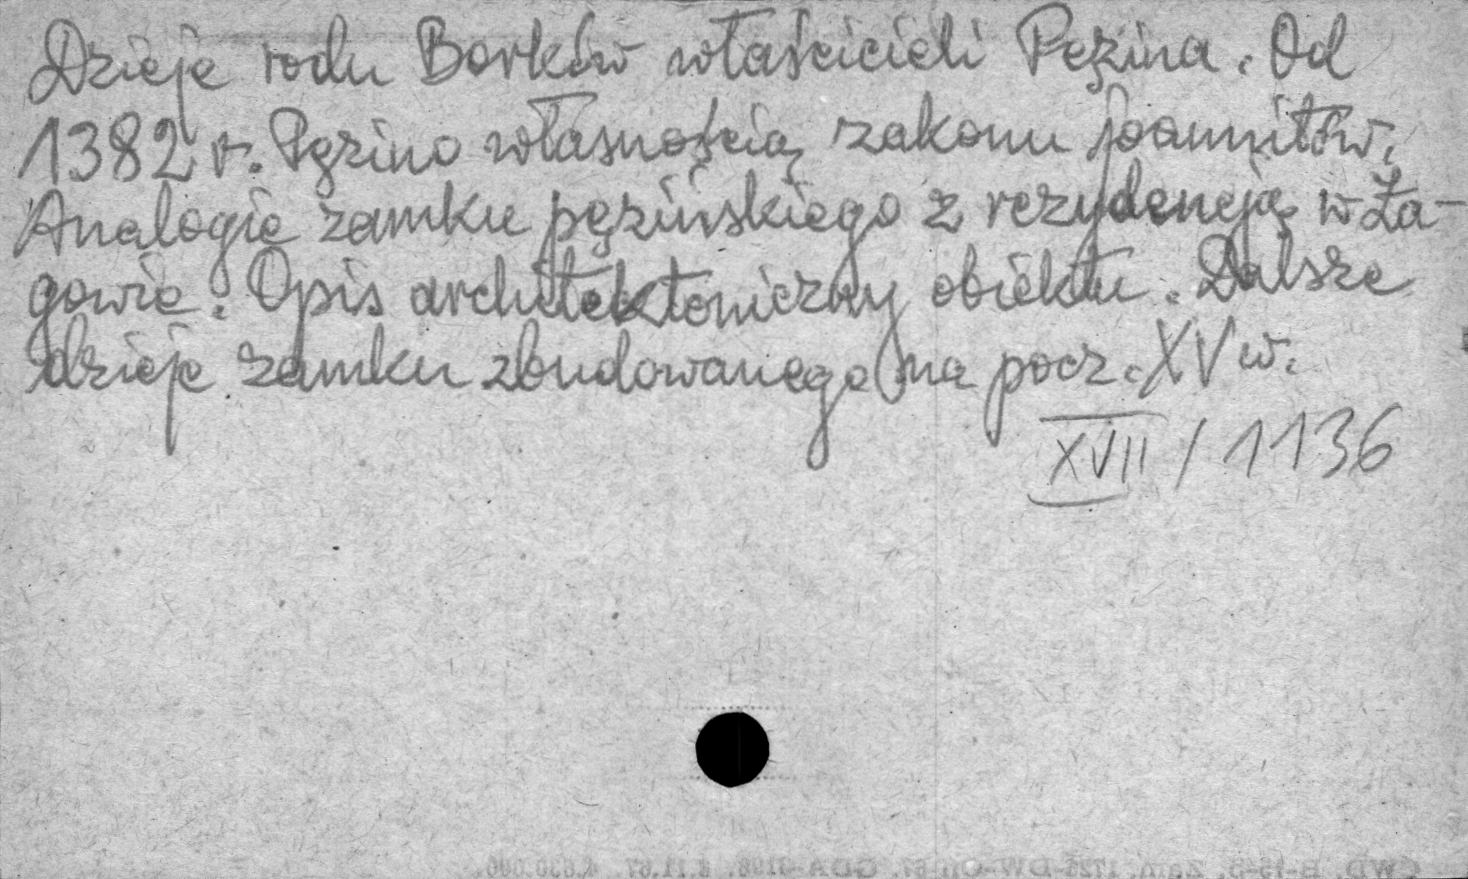 Dzieje rodu Borków właścicieli Pęzina. Od
1382 r. Pęzino własnością zakonu joannitów.
Analogie zamku pęzińskiego z rezydencją w Ła-
gowie. Opis architektoniczny obiektu. Dalsze
dzieje zamku zbudowanego na pocz. XV w.
XVII / 1136